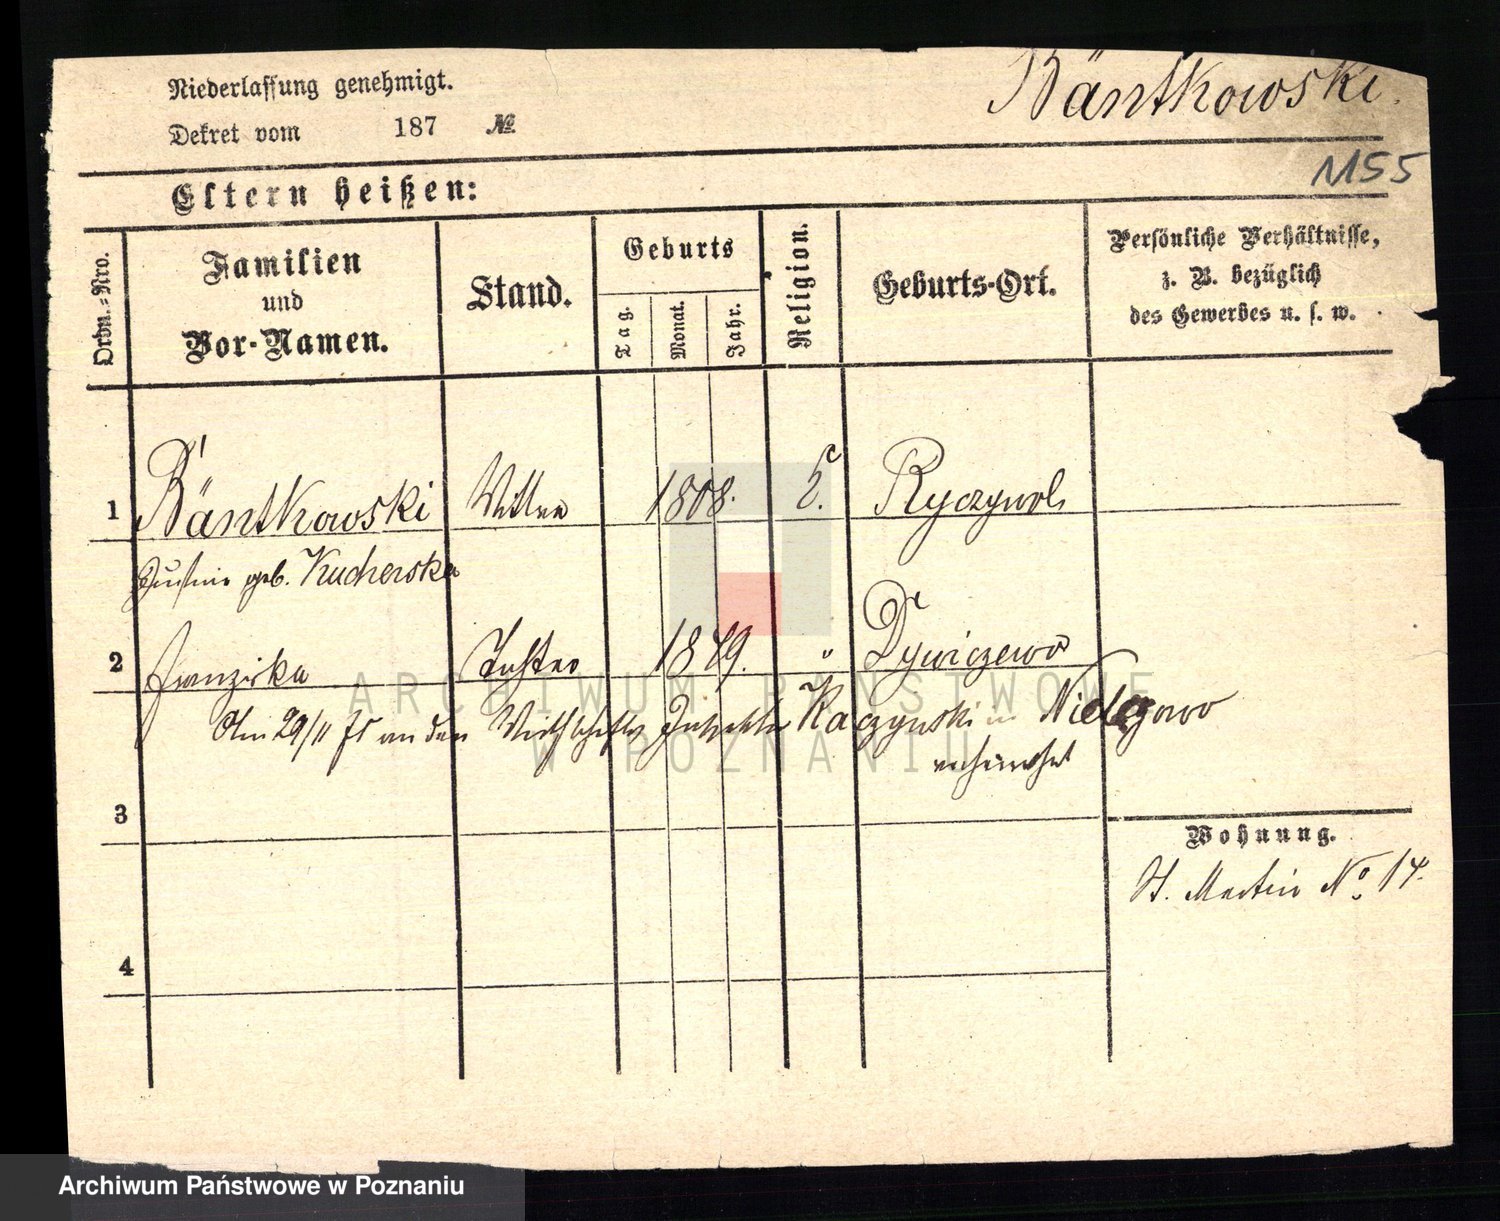 Niederlassung genehmigt.
Bäntkowski.
Dekret vom 187 №
1155
Eltern heißen:
Ordn.-Nro.
Familien und Vor-Namen.
Stand.
Geburts
Tag.
Monat.
Jahr.
Religion.
Geburts-Ort.
Persönliche Verhältnisse,
z. B. bezüglich
des Gewerbes u. s. w.
1 Bäntkowski Wittwe 1808. Ryczywol
Justine geb. Kucherska
2 Franziska Tochter 1849. "
Am 29/11 75 an den Wirthschafts Inspektor Kaczynski in
verheirathet
3
Wohnung.
St. Martin No. 14.
4
ARCHIWUM PAŃSTWOWE
W POZNANIU
Archiwum Państwowe w Poznaniu